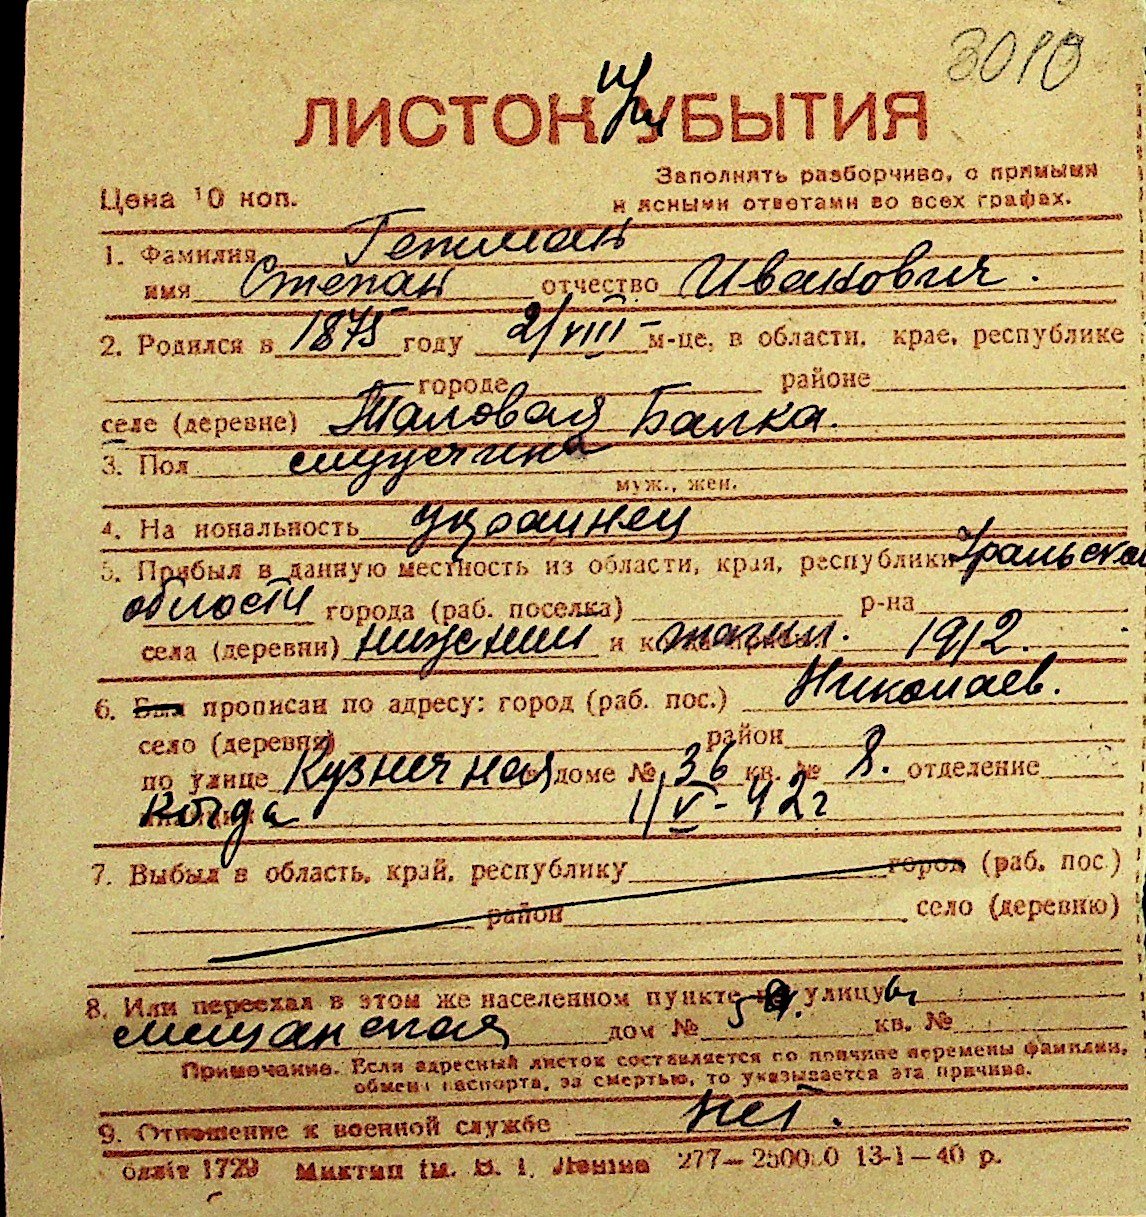 3010
ЛИСТОК УБЫТИЯ
Заполнять разборчиво, с прямыми
Цена 10 коп.
и ясными ответами во всех графах.
1. Фамилия Гетман
имя Степан отчество Иванович.
2. Родился в 1875 году 2/VIII- м-це, в области, крае, республике
городе районе
селе (деревне) Таловая Балка.
3. Пол мущчина
муж., жен.
4. На иональность украинец
5. Прибыл в данную местность из области, края, республики Уральской
области города (раб. поселка) р-на
села (деревни) нижений и тагил. 1912.
6. Был прописан по адресу: город (раб. пос.) Николаев.
село (деревня) район
по улице Кузнечная доме № 36 кв. № 8. отделение
Когда 1/V-42г
7. Выбыл в область, край, республику город (раб. пос.)
район село (деревню)
8. Или переехал в этом же населенном пункте на улицу
мещанская дом № кв. №
Примечание. Если адресный листок составляется по причине перемены фамилии,
обмена паспорта, за смертью, то указывается эта причина.
9. Отношение к военной службе Нет.
Облліт 1729 Миктип ім. В. І. Леніна 277—250000 13-1—40 р.